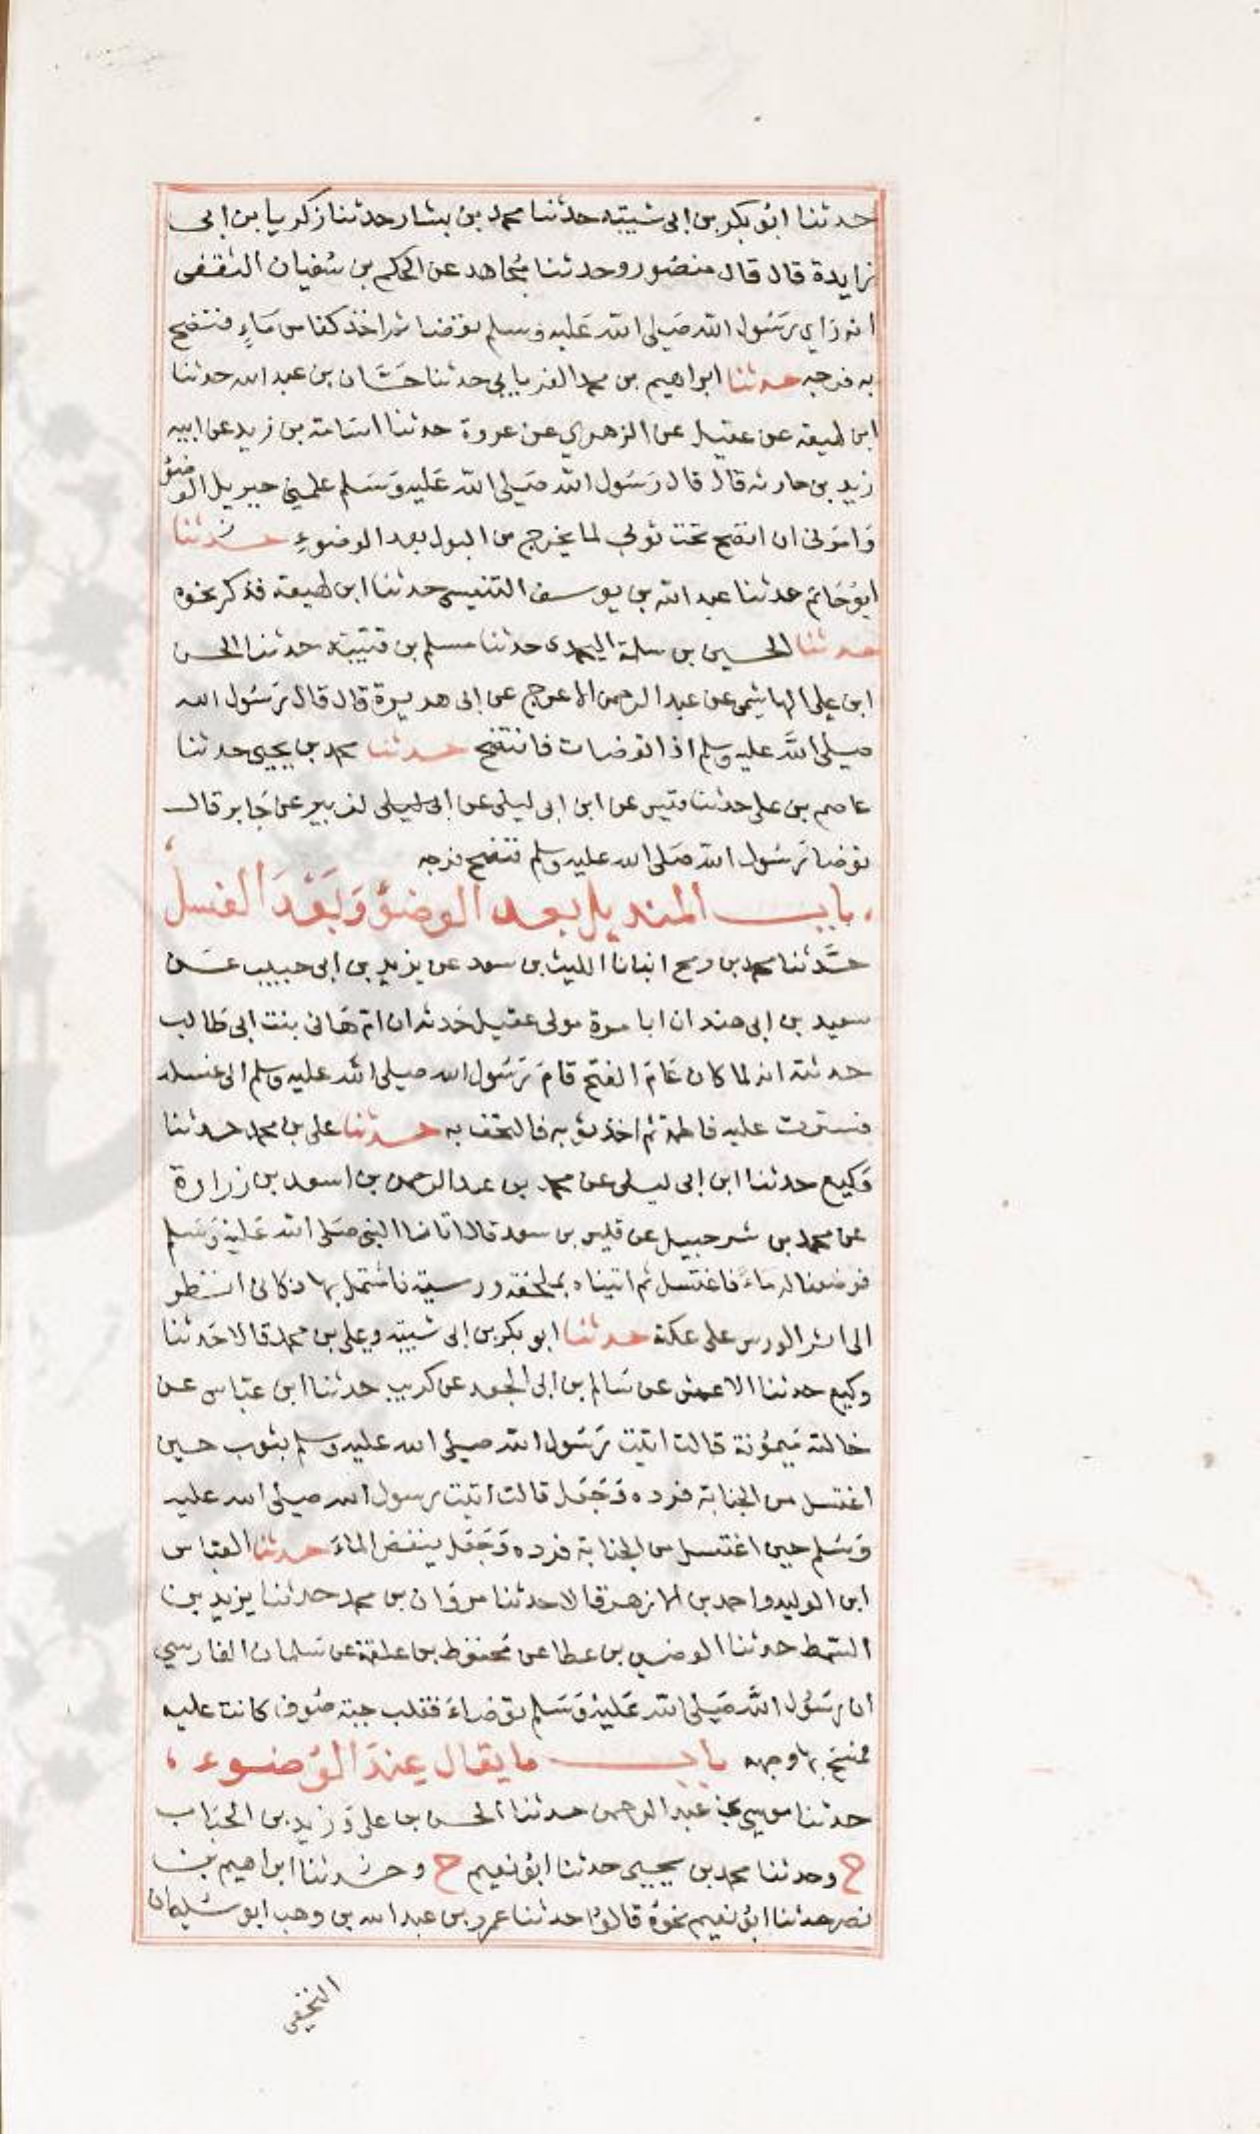 حدثنا ابو بكر بن ابى شيبة حدثنا محمد بن بشار حدثنا زكريا بن ابى
زايدة قال قال منصور وحدثنا مجاهد عن الحكم بن سفيان الثقفى
انه راي رسول الله صلى الله عليه وسلم توضا ثم اخذ كفا من ماءٍ فنتضح
به فرجه حدثنا ابراهيم بن محمد الفريابي حدثنا حسان بن عبد الله حدثنا
ابن لهيعة عن عقيل عن الزهري عن عروة حدثنا اسامة بن زيد عن ابيه
زيد بن حارثه قال قال رَسُول الله صَلى الله عَليه وَسَلم علمني جبريل الوضوء
وَامَرَنى ان انضح تحت ثوبى لما يخرج من البول بعد الوضوءِ حدثنا
ابوُحَاتم حدثنا عبد الله بن يوسف التنيسى حدثنا ابن لهيعة فذكر نحوه
حدثنا الحسين بن سلمة اليحمدى حدثنا مسلم بن قتيبة حدثنا الحسن
ابن على الهاشمى عن عبد الرحمن الاعرج عن ابى هريرة قال قال رَسُول الله
صلى الله عليه وسلم اذا توضات فانتضح حدثنا محمد بن يحيى حدثنا
عاصم بن على حدثنا قيس عن ابن ابى ليلى عن ابى الزبير عن جَابر قال
توضا رَسُول الله صَلى الله عليه وسلم فنضح فرجه
باب المنديل بعد الوضوُ وَبَعْدَ الغسل
حدَّثنا محمد بن رمح انبانا الليث بن سعد عن يزيد بن ابى حبيب عن
سعيد بن ابى هند ان ابا مرة مولى عقيل حَدثه ان ام هَانى بنت ابى طَالب
حدثته انه لما كان عَامَ الفتح قامَ رَسُول الله صلى الله عليه وسلم الى غسله
فسترت عليه فاطمة ثم اخذ ثوبه فالتحف به حدثنا على بن محمد حدثنا
وَكيع حدثنا ابن ابى ليلى عن محمد بن عبد الرحمن بن اسعد بن زرارة
عن محمد بن شرحبيل عن قيس بن سعد قال اتانا النبى صَلى الله عَليه وَسَلم
فوضعنا له ماءً فاغتسل ثم اتيناه بملحفة ورسية فاشتمل بها فكانى انظر
الى اثر الورس على عكنه حدثنا ابو بكر بن ابى شيبة وعلى بن محمد قالا حَدثنا
وكيع حدثنا الاعمش عن سَالم بن ابى الجعد عن كريب حدثنا ابن عبَّاس عن
خالته مَيمُونة قالت اتيت رَسُول الله صلى الله عليه وسلم بثوب حين
اغتسل من الجنابة فرده وَجَعَل قالت اتيت رسول الله صلى الله عليه
وَسَلم حين اغتسل من الجنابة فرده وَجَعَل ينفض الماءَ حدثنا العباس
ابن الوليد واحمد بن الازهر قالا حدثنا مروَان بن محمد حدثنا يزيد بن
السّمط حدثنا الوضين بن عطا عن مَحفوظ بن علقمة عن سَلمان الفارسي
ان رسَوُل الله صَلى الله عَليْه وَسَلم توضاءَ فقلب جبة صُوف كانت عليه
فمسَح بها وجهه باب ما يقال عِندَ الوُضوء
حدثنا موسى بن عبد الرحمن حدثنا الحسن بن على وَزيد بن الحبَاب
ح وحدثنا محمد بن يحيى حدثنا ابوُ نعيم ح وحدثنا ابراهيم بن
نصر حدثنا ابوُ نعيم نحوُه قالوُا حدثنا عمرو بن عبد الله بن وهب ابو سُليمان
النخعى